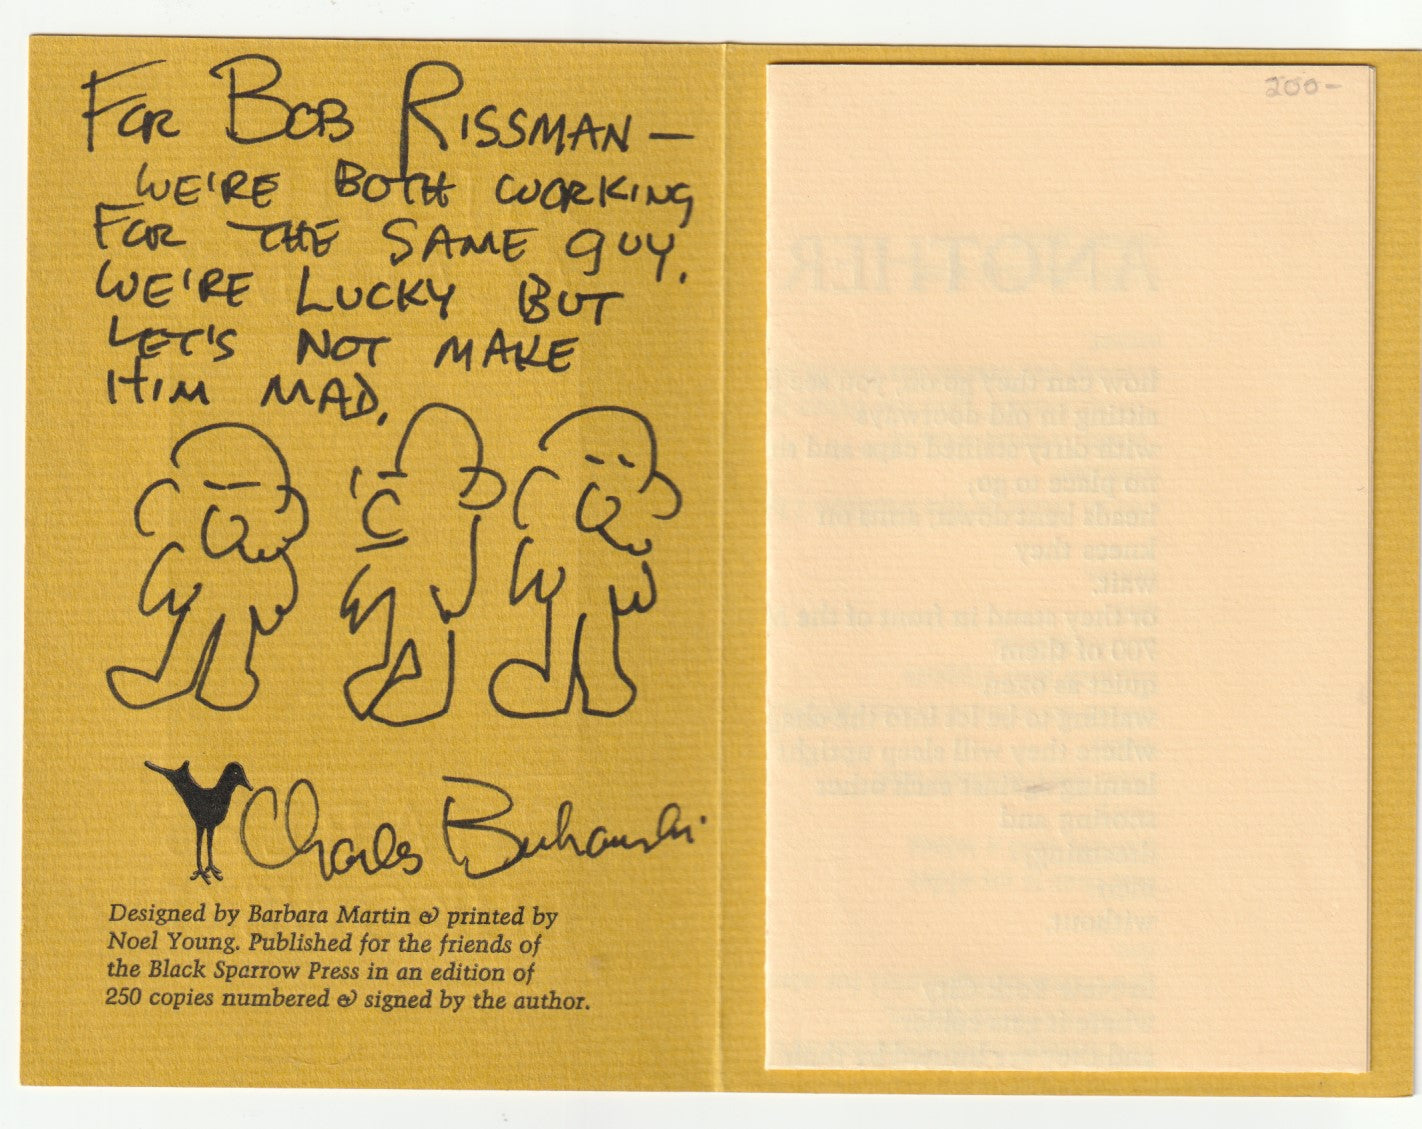 FOR BOB RISSMAN —
WE'RE BOTH WORKING
FOR THE SAME GUY.
WE'RE LUCKY BUT
LET'S NOT MAKE
HIM MAD.
Charles Bukowski
Designed by Barbara Martin & printed by
Noel Young. Published for the friends of
the Black Sparrow Press in an edition of
250 copies numbered & signed by the author.
200-
ANOTHER
how can they go on, you see
sitting in old doorways
with dirty stained caps and
no place to go;
heads bent down, arms on
knees they
wait.
or they stand in front of the
700 of them
quiet as oxen
waiting to be let into the
where they will sleep upright
leaning against each other
snoring and
dreaming;
men
without.